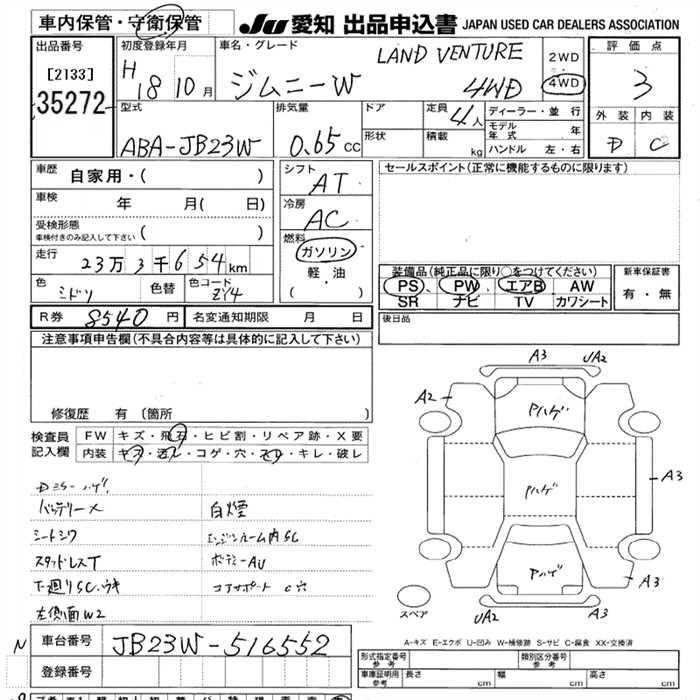 車内保管・守衛保管 JU 愛知 出品申込書 JAPAN USED CAR DEALERS ASSOCIATION
出品番号 初度登録年月 車名・グレード LAND VENTURE 2WD 評価点
[2133] H 18 10月 ジムニーW 4WD 4WD 3
35272 型式 排気量 ドア 定員 4人 ディーラー・並行 外装 内装
ABA-JB23W 0.65 CC 形状 積載 kg モデル年式 年 D C
ハンドル 左・右
車歴 自家用・( ) シフト AT セールスポイント(正常に機能するものに限ります)
車検 年 月( 日) 冷房 AC
受検形態
車検付きのみ記入して下さい ( ) 燃料 ガソリン
走行 23万3千654km 軽・油 装備品(純正品に限り○をつけてください) 新車保証書
色 ミドリ 色替 色コード ZY4 ( ) PS PW エアB AW 有・無
SR ナビ TV カワシート
R券 8540円 名変通知期限 月 日 後日品
注意事項申告欄(不具合内容等は具体的に記入して下さい)
A3 UA2
A2 Pハゲ
修復歴 有(箇所
検査員 FW キズ・飛石・ヒビ割・リペア跡・X要
記入欄 内装 キズ・汚レ・コゲ・穴・スレ・キレ・破レ
A3
Pハゲ
Dミラーハゲ
バッテリーX 白煙
シートシワ エンジンルーム内SC
スタッドレスT ボデーAU
下廻りSC.サキ コアサポート C穴
Pハゲ A3
スペア UA2 A3
左側面W2
A-キズ E-エクボ U-凹み W-補修跡 S-サビ C-腐食 XX-交換済
N 車台番号 JB23W-516552
登録番号
形式指定番号 参考 類別区分番号 参考
車庫証明用 参考 長さ cm 幅 cm 高さ cm